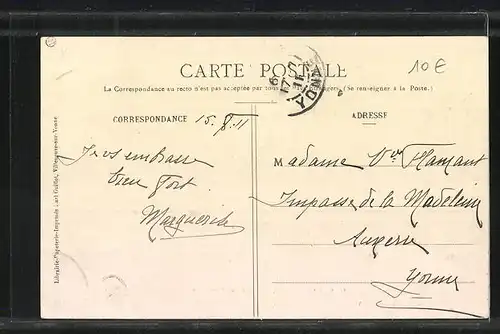 10€
CARTE POSTALE
La Correspondance au recto n'est pas acceptée par tous (Se renseigner à la Poste.)
CORRESPONDANCE
15.8.11
ADRESSE
Je vs embrasse
bien fort
Marguerite
Madame Vve Flamant
Impasse de la Madeleine
Auxerre
Yonne
Librairie-Papeterie-Imprimerie Villeneuve-sur-Yonne